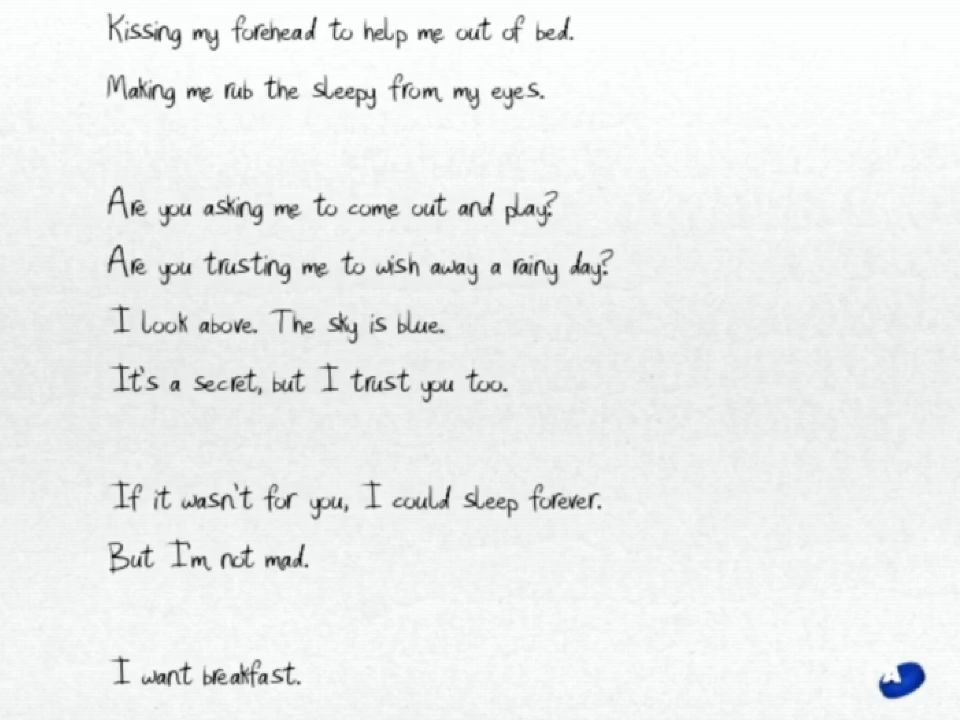 Kissing my forehead to help me out of bed.
Making me rub the sleepy from my eyes.
Are you asking me to come out and play?
Are you trusting me to wish away a rainy day?
I look above. The sky is blue.
It's a secret, but I trust you too.
If it wasn't for you, I could sleep forever.
But I'm not mad.
I want breakfast.
A